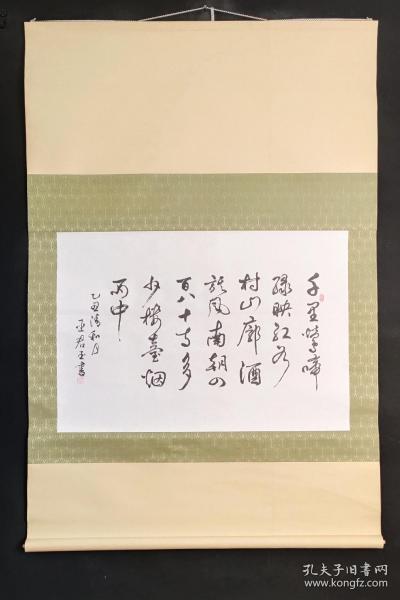 千里鶯啼
緑映红水
村山廓酒
旗風南朝四
百八十寺多
少楼臺烟
雨中
乙丑清和月
巫君玉書
孔夫子旧书网
www.kongfz.com